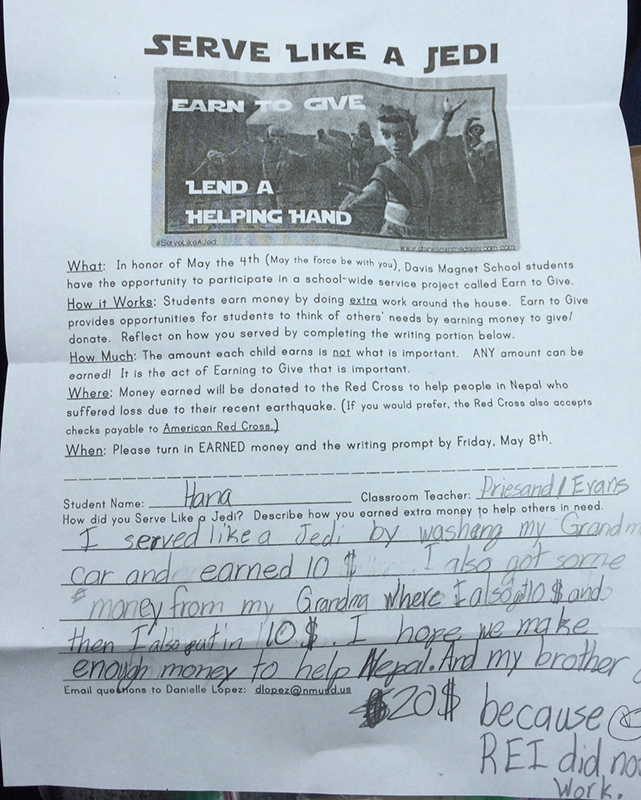 SERVE LIKE A JEDI
EARN TO GIVE
LEND A
HELPING HAND
#ServeLikeAJedi
What: In honor of May the 4th (May the force be with you), Davis Magnet School students
have the opportunity to participate in a school-wide service project called Earn to Give.
How it Works: Students earn money by doing extra work around the house. Earn to Give
provides opportunities for students to think of others' needs by earning money to give/
donate. Reflect on how you served by completing the writing portion below.
How Much: The amount each child earns is not what is important. ANY amount can be
earned! It is the act of Earning to Give that is important.
Where: Money earned will be donated to the Red Cross to help people in Nepal who
suffered loss due to their recent earthquake. (If you would prefer, the Red Cross also accepts
checks payable to American Red Cross.)
When: Please turn in EARNED money and the writing prompt by Friday, May 8th.
Student Name: Hana Classroom Teacher: Priesand/Evans
How did you Serve Like a Jedi? Describe how you earned extra money to help others in need.
I served like a Jedi by washing my Grandm
car and earned 10 $ I also got some
money from my Grandma where I also got 10 $ and
then I also put in 10 $. I hope we make
enough money to help Nepal. And my brother
Email questions to Danielle Lopez: dlopez@nmusd.us
20$ because
REI did not
work.